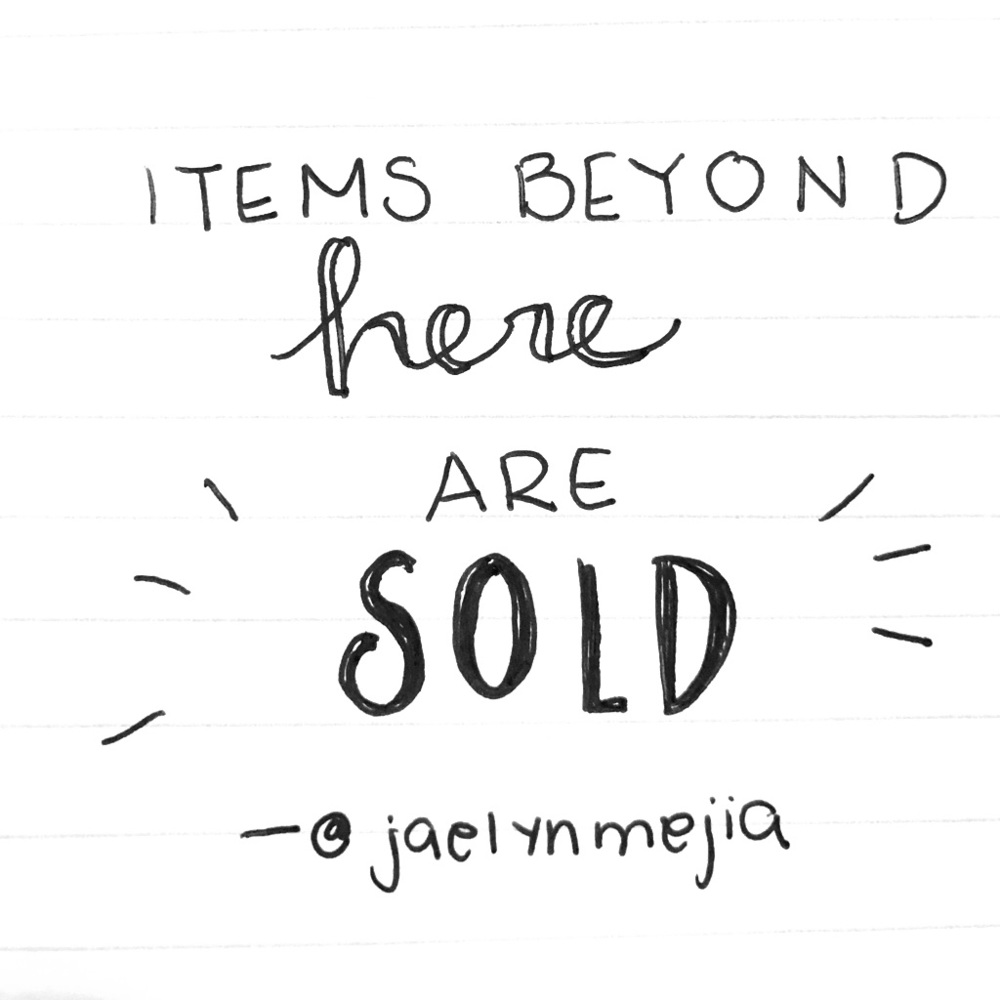 ITEMS BEYOND
here
ARE
SOLD
—@jaelynmejia